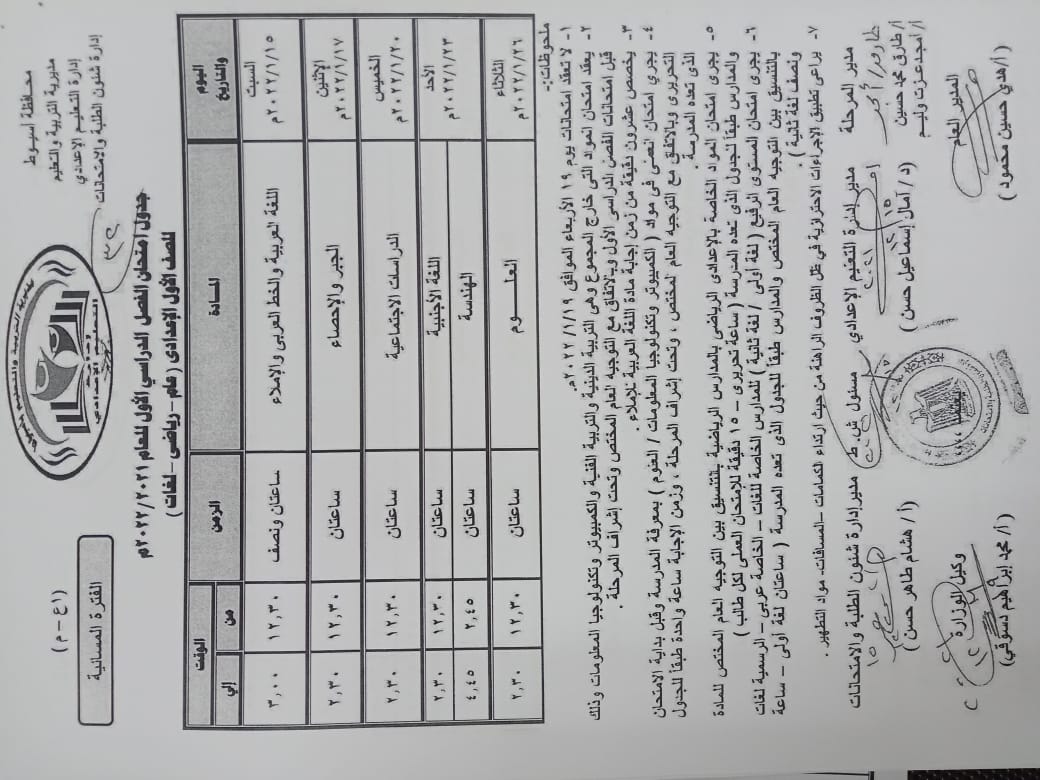 محافظة أسيوط
مديرية التربية والتعليم
إدارة التعليم الإعدادي
إدارة شئون الطلبة والامتحانات
(١ع - م)
الفترة المسائية
جدول إمتحان الفصل الدراسي الأول للعام ٢٠٢١ / ٢٠٢٢م
للصف الأول الإعدادى ( عام - رياضى - لغات )
اليوم والتاريخ المادة الزمن الوقت
من إلي
السبت ٢٠٢٢/١/١٥م اللغة العربية والخط العربى والإملاء ساعتان ونصف ١٢,٣٠ ٣,٠٠
الإثنين ٢٠٢٢/١/١٧م الجبر والإحصاء ساعتان ١٢,٣٠ ٢,٣٠
الخميس ٢٠٢٢/١/٢٠م الدراسات الاجتماعية ساعتان ١٢,٣٠ ٢,٣٠
الأحد ٢٠٢٢/١/٢٣م اللغة الأجنبية ساعتان ١٢,٣٠ ٢,٣٠
الهندسة ساعتان ٢,٤٥ ٤,٤٥
الثلاثاء ٢٠٢٢/١/٢٦م العلـــوم ساعتان ١٢,٣٠ ٢,٣٠
ملحوظات:-
١- لا تعقد امتحانات يوم ١٩ الأربعاء الموافق ٢٠٢٢/١/١٩م.
٢- يعقد امتحان المواد التى خارج المجموع وهى التربية الدينية والتربية الفنية والكمبيوتر وتكنولوجيا المعلومات وذلك
قبل امتحانات الفصل الدراسى الأول وبالاتفاق مع التوجيه العام المختص وتحت إشراف المرحلة .
٣- يخصص عشرون دقيقة من زمن إجابة مادة اللغة العربية للإملاء.
٤- يجرى امتحان العملى فى مواد ( الكمبيوتر وتكنولوجيا المعلومات / العلوم ) بمعرفة المدرسة وقبل بداية الامتحان
التحريرى وبالاتفاق مع التوجيه العام المختص ، وتحت إشراف المرحلة ، وزمن الإجابة ساعة واحدة طبقاً للجدول
الذى تعده المدرسة
٥- يجرى امتحان المواد الخاصة بالإعدادى الرياضى بالمدارس الرياضية بالتنسيق بين التوجيه العام المختص للمادة
والمدارس طبقاً لجدول الذى تعده المدرسة ( ساعة تحريرى - ١٥ دقيقة للإمتحان العملى لكل طالب )
٦- يجرى امتحان المستوى الرفيع ( لغة أولى / لغة ثانية ) للمدارس الخاصة للغات - الخاصة عربى - الرسمية لغات
بالتنسيق بين التوجيه العام المختص والمدارس طبقاً للجدول الذى تعده المدرسة ( ساعتان لغة أولى - ساعة
ونصف لغة ثانية ) .
٧- يراعى تطبيق الإجراءات الاحترازية في ظل الظروف الراهنة من حيث ارتداء الكمامات -المسافات- مواد التطهير .
مدير المرحلة مدير إدارة التعليم الإعدادي مسئول ش.ط مدير إدارة شئون الطلبة والامتحانات
أ/طارق محمد حسين
أ/أمجد عزت وليم
( د / أمال إسماعيل حسن )
( أ / هشام طاهر حسن )
المدير العام
( أ/هدي حسين محمود )
وكيل الوزارة
( أ/ محمد إبراهيم دسوقي )